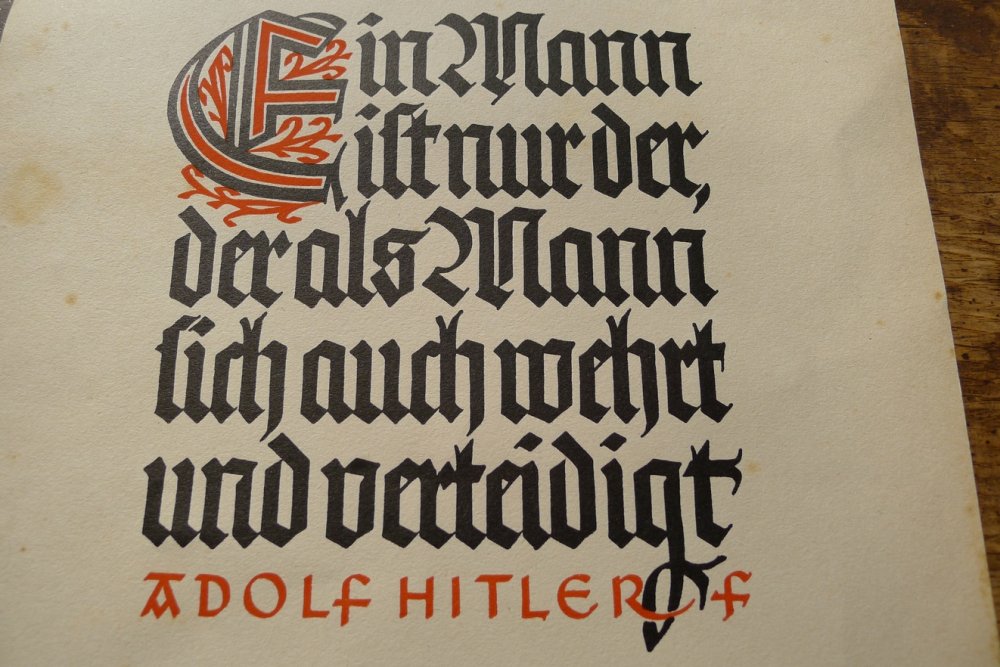 Ein Mann
ist nur der,
der als Mann
sich auch wehrt
und verteidigt
ADOLF HITLER F